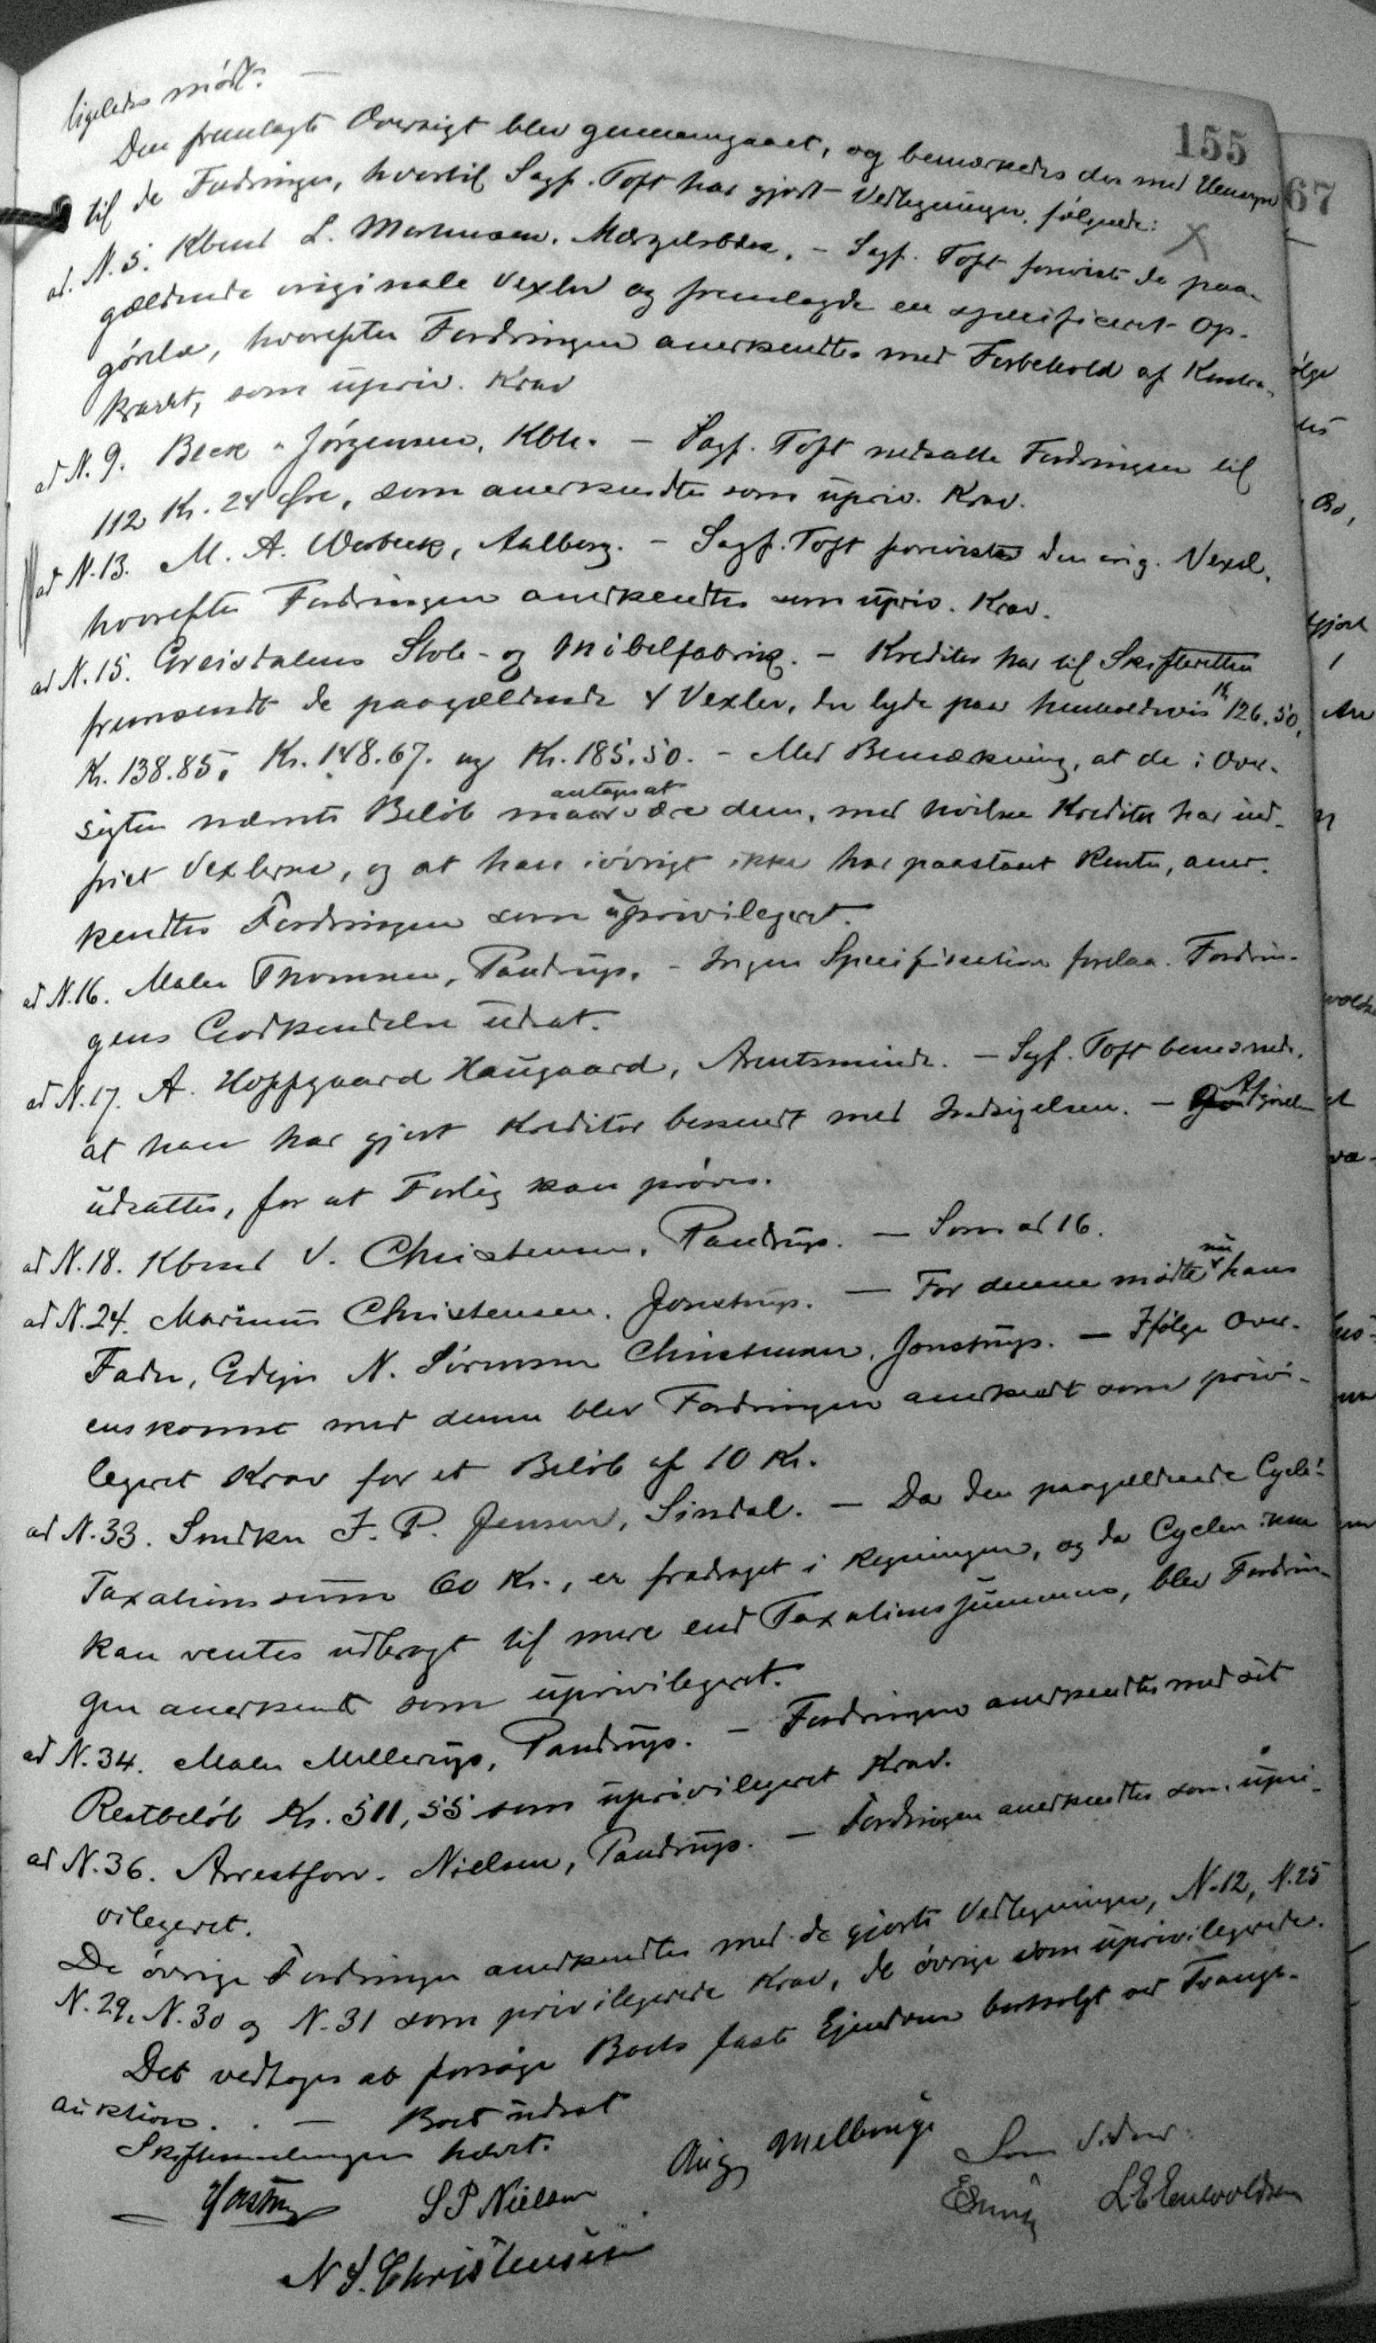 155
ligeledes mødt. —
Den fremlagte Oversigt blev gennemgaaet, og bemærkedes der med Hensyn
til de Fordringer, hvortil Sagf. Toft har gjort Vedtegninger, følgende:
ad. N. 5. Kbmd L. Mortensen. - Sagf. Toft foreviste de paa-
gældende originale Vexler og fremlagde en specificeret Op-
gørelse, hvorefter Fordringen anerkendtes med Forbehold af Kontra-
kravet, som upriv. Krav
ad N. 9. Beck & Jørgensen, Kbh. - Sagf. Toft nedsatte Fordringen til
112 Kr. 24 Øre, som anerkendtes som upriv. Krav.
ad N. 13. M. A. Worbeck, Aalborg. - Sagf. Toft foreviste den orig. Vexel,
hvorefter Fordringen anerkendtes som upriv. Krav.
ad N. 15. Greisdalens Stole- og Møbelfabrik. - Kreditor har til Skifteretten
fremsendt de paagældende 4 Vexler, der lyde paa henholdsvis Kr. 126.50,
Kr. 138.85, Kr. 148.67. og Kr. 185.50. - Med Bemærkning, at de i Over-
sigten nævnte Beløb maa antages at være dem, med hvilke Kreditor har ind-
friet Vexlerne, og at han iøvrigt ikke har paastaaet Renter, aner-
kendtes Fordringen som uprivilegeret.
ad N. 16. Maler Thomsen, Pandrup. - Ingen Specifikation forelaa. Fordrin-
gens Godkendelse udsat.
ad N. 17. A. Hoffgaard Haugaard, Arentsminde. - Sagf. Toft bemærkede,
at han har gjort Kreditor bekendt med Indsigelsen. - Afgørelsen
udsattes, for at Forlig kan prøves.
ad N. 18. Kbmd V. Christensen, Pandrup. - Som ad 16.
ad N. 24. Marinus Christensen. Jonstrup. - For denne mødte nu hans
Fader, Gdejer N. Sørensen Christensen, Jonstrup. - Ifølge Over-
enskomst med denne blev Fordringen anerkendt som privi-
legeret Krav for et Beløb af 10 Kr.
ad N. 33. Snedker J. P. Jensen, Sindal. - Da den paagældende Cycle's
Taxationssum 60 Kr., er fradraget i Regningen, og da Cyclen ikke
kan ventes udbragt til mere end Taxationssummen, blev Fordrin-
gen anerkendt som uprivilegeret.
ad N. 34. Maler Mellerup, Pandrup. - Fordringen anerkendtes med sit
Restbeløb Kr. 511,55 som uprivilegeret Krav.
ad N. 36. Arrestforv. Nielsen, Pandrup. - Fordringen anerkendtes som upri-
vilegeret.
De øvrige Fordringer anerkendtes med de gjorte Vedtegninger, N. 12, N. 25
N. 29, N. 30 og N. 31 som privilegerede Krav, de øvrige som uprivilegerede.
Det vedtoges at forsøge Boets faste Ejendom bortsolgt ved Tvangs-
auktion. - Boet udsat
Skiftesamlingen hævet.
S P Nielsen
Aug Mellerup
Som Vidner:
L E Enevoldsen
N S. Christensen
67